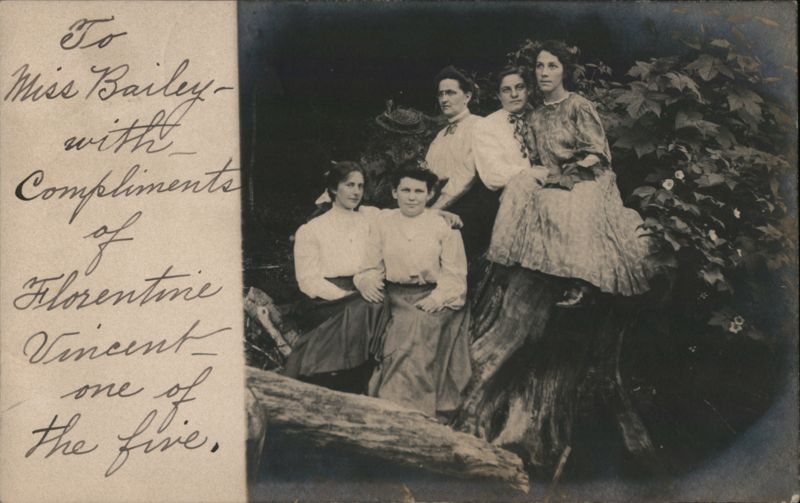 To
Miss Bailey-
with-
Compliments
of
Florentine
Vincent-
one of
the five.